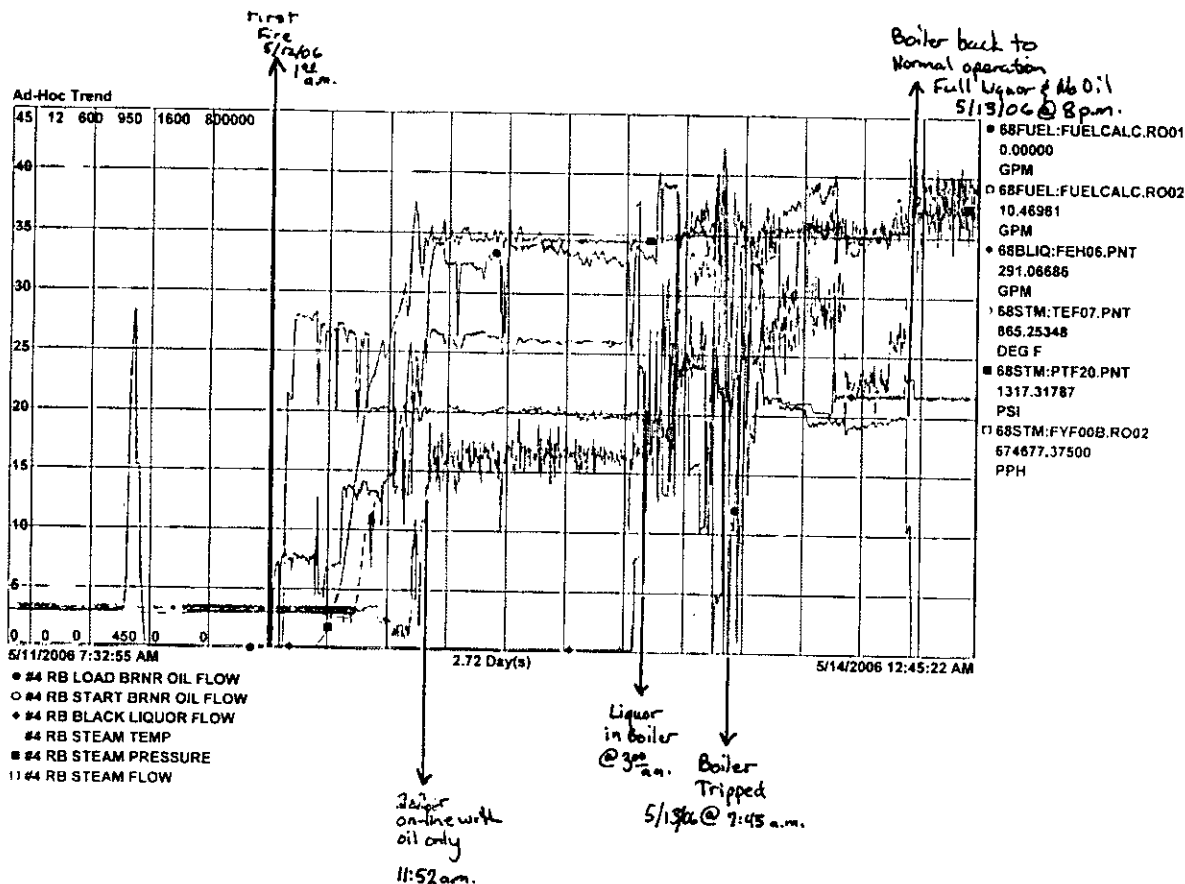 First
Fire
5/12/06
1 a.m.
Boiler back to
Normal operation
Full Liquor & No Oil
5/13/06 @ 8 p.m.
Ad-Hoc Trend
45 12 600 950 1600 800000
40
35
30
25
20
15
10
5
0 0 0 450 0 0
5/11/2006 7:32:55 AM
2.72 Day(s)
5/14/2006 12:45:22 AM
68FUEL:FUELCALC.RO01
0.00000
GPM
68FUEL:FUELCALC.RO02
10.46961
GPM
68BLIQ:FEH06.PNT
291.06686
GPM
68STM:TEF07.PNT
865.25348
DEG F
68STM:PTF20.PNT
1317.31787
PSI
68STM:FYF00B.RO02
674677.37500
PPH
#4 RB LOAD BRNR OIL FLOW
#4 RB START BRNR OIL FLOW
#4 RB BLACK LIQUOR FLOW
#4 RB STEAM TEMP
#4 RB STEAM PRESSURE
#4 RB STEAM FLOW
Boiler
on-line with
oil only
11:52 a.m.
Liquor
in Boiler
@ 3:00 a.m.
Boiler
Tripped
5/13/06 @ 7:45 a.m.